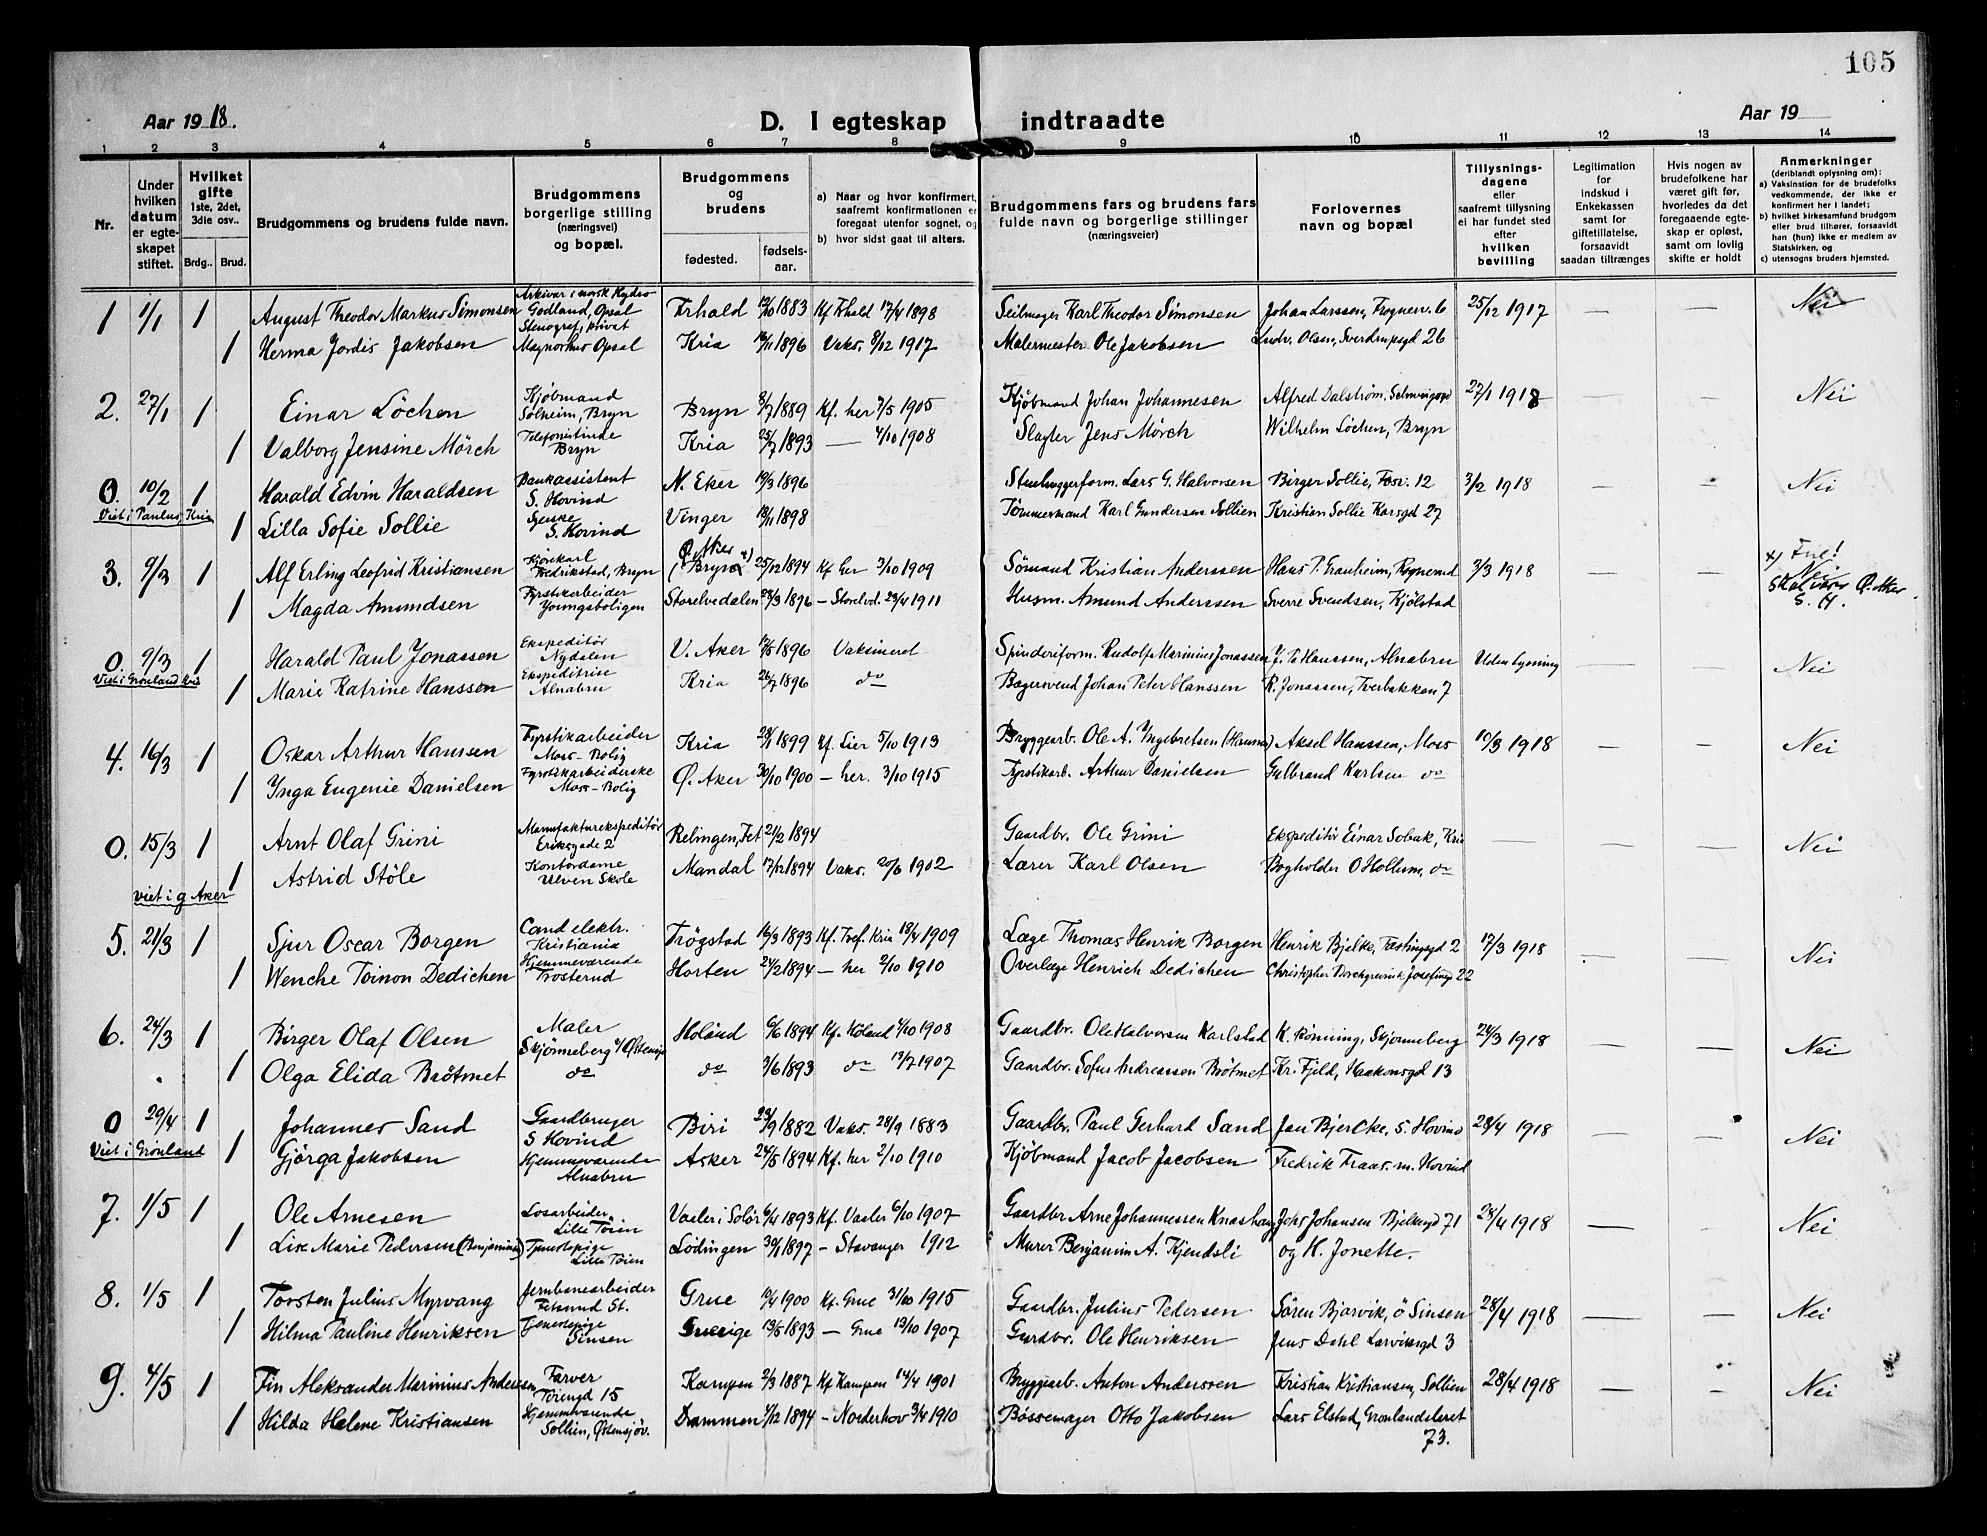 105
Aar 1918.
D. I egteskap indtraadte
Aar 19
1 2 3 4 5 6 7 8 9 10 11 12 13 14
Nr.
Under hvilken datum er egteskapet stiftet.
Hvilket gifte 1ste, 2det, 3die osv..
Brdg.. Brud.
Brudgommens og brudens fulde navn.
Brudgommens borgerlige stilling (næringsvei) og bopæl.
Brudgommens og brudens
fødested. fødsels-aar.
a) Naar og hvor konfirmert, saafremt konfirmationen er foregaat utenfor sognet, og
b) hvor sidst gaat til alters.
Brudgommens fars og brudens fars fulde navn og borgerlige stillinger (næringsveier)
Forlovernes navn og bopæl
Tillysnings-dagene eller saafremt tillysning ei har fundet sted efter hvilken bevilling
Legitimation for indskud i Enkekassen samt for giftetillatelse, forsaavidt saadan tiltrænges
Hvis nogen av brudefolkene har været gift før, hvorledes da det foregaaende egteskap er opløst, samt om lovlig skifte er holdt
Anmerkninger (deriblandt oplysning om):
a) Vaksination for de brudefolks vedkommende, der ikke er konfirmert her i landet;
b) hvilket kirkesamfund brudgom eller brud tilhører, forsaavidt han (hun) ikke er medlem av Statskirken, og
c) utensogns bruders hjemsted.
1 1/1 1 August Theodor Markus Simonsen Arkivar i norsk Hydro Godland, Opsal Frhald 12/10 1883 Kf. Frhald 17/4 1898 Seilmager Karl Theodor Simonsen Johan Larssen, Frognerv. 6 25/12 1917 — — Nei
1 Herma Jordis Jakobsen Stenograf, privat Maynorhus Opsal Kria 19/11 1896 Vaks. 8/12 1917 Malermester Ole Jakobsen Ludv. Olsen, Sverdrupsgd 26
2. 27/1 1 Einar Löchen Kjøbmand Solheim, Bryn Bryn 8/7 1889 Kf. her 7/5 1905 Kjøbmand Johan Johannesen Alfred Dalström, Schweigsgd 27/1 1918 — — Nei
1 Valborg Jensine Mörch Telefonistinde Bryn Kria 25/7 1893 — 4/10 1908 Slagter Jens Mörch Wilhelm Löchen, Bryn
0. 10/2 1 Harald Edvin Haraldsen Bankassistent S. Hovind N. Eker 19/3 1896 Stenhuggerform. Lars G. Halvorsen Birger Sollie, Fosv. 12 3/2 1918 — — Nei
Viet i Paulus, Kria 1 Lilla Sofie Sollie S. Hovind Vinger 13/11 1898 Tömmermand Karl Gundersen Sollien Kristian Sollie Korsgd 27
3. 9/3 1 Alf Erling Leofrid Kristiansen Kjörekarl Fredrikstad, Bryn Ø. Aker x) (Bryn) 25/12 1894 Kf her 3/10 1909 Sømand Kristian Anderssen Hans P. Granheim, Rognerud 3/3 1918 — — x) Feil! Nei
1 Magda Amundsen Fyrstikarbeider Youngsboligen Storelvedalen 23/3 1896 — Storelvd. 23/4 1911 Husm. Amund Anderssen Sverre Svendsen, Kjölstad Skal være Ø. Aker. S. H.
0. 9/3 1 Harald Paul Jonassen Ekspeditör Nydalen V. Aker 12/5 1896 Vaksineret Spinderiform. Rudolf Marinius Jonassen J. P. Hanssen, Alnabru Uden lysning — Nei
Viet i Grønland Kria 1 Marie Katrine Hanssen Ekspeditrise Alnabru Kria 26/7 1896 do Bagersvend Johan Peter Hanssen R. Jonassen, Tverbakken 7
4. 16/3 1 Oskar Arthur Hansen Fyrstikarbeider Moss-Bolig Kria 28/1 1899 Kf. Lier 5/10 1913 Bryggearb. Ole A. Yngebretsen (Hansen) Aksel Hanssen, Moss 10/3 1918 — — Nei
1 Ynga Eugenie Danielsen Fyrstikarbeiderske Moss-Bolig Ø. Aker 30/10 1900 — her. 3/10 1915 Fyrstikarb. Arthur Danielsen Gulbrand Karlsen do
0. 15/3 1 Arnt Olaf Grini Manufakturekspeditör Eriksgade 2 Relingen, Fet 21/2 1894 Gaardbr. Ole Grini Ekspeditör Einar Sobak, Kria — — — Nei
1 Astrid Stöle Kontordame Ulven Skole Mandal 17/12 1894 Vaks. 20/6 1902 Lærer Karl Olsen Bogholder O Hollum, do
viet i g Aker
5. 21/3 1 Sjur Oscar Borgen Cand elektr. Kristiania Trögstad 16/3 1893 Kf. Tref. Kria 18/4 1909 Læge Thomas Henrik Borgen Henrik Bjelke, Fæstingsgd 2 17/3 1918 — — Nei
1 Wenche Toinon Dedichen Hjemmeværende Trosterud Horten 24/2 1894 — her 2/10 1910 Overlæge Henrich Dedichen Christopher Borchgrevink Josefinegd 22
6. 24/3 1 Birger Olaf Olsen Maler Skjönneberg v/Østensjø Höland 6/6 1894 Kf. Höland 4/10 1908 Gaardbr. Ole Halvorsen Karlstad K. Rönning, Skjönneberg 24/3 1918 — — Nei
1 Olga Elida Brötmet do do 3/6 1893 do 13/7 1907 Gaardbr. Sofus Andreassen Brötmet Kr. Fjeld, Haakonsgd 13
0 29/4 1 Johannes Sand Gaardbruger S Hovind Biri 23/9 1882 Vaks. 28/9 1883 Gaardbr. Paul Gerhard Sand Jan Bjercke, S. Hovind 28/4 1918 — — Nei
Viet i Grønland 1 Gjörga Jakobsen Hjemmeværende Alnabru Asker 24/5 1894 Kf. her 2/10 1910 Kjøbmand Jacob Jacobsen Fredrik Fraas. m. Hovind
7. 1/5 1 Ole Arnesen Losarbeider Lille Töien Vaaler i Solör 6/4 1893 Kf. Vaaler 6/10 1907 Gaardbr Arne Johannessen Knashaug Johs Johansen Bjelkegd 71 28/4 1918 — — Nei
1 Lise Marie Pedersen (Benjaminsd) Tjenestepige Lille Töien Lödingen 30/1 1897 — Stavanger 1912 Murer Benjamin A. Kjendsli og K. Jonette.
8. 1/5 1 Torsten Julius Myrvang Jernbanearbeider Fetsund St. Grue 10/4 1900 Kf. Grue 31/10 1915 Gaardbr. Julius Pedersen Sören Bjarvik, ö Sinsen 28/4 1918 — — Nei
1 Hilma Pauline Henriksen Tjenestepige Sinsen Sverige 13/5 1893 — Grue 13/10 1907 Gardbr. Ole Henriksen Jens Dahl Larviksgd 3
9. 4/5 1 Fin Aleksander Marinius Andersen Farver Töiengd 15 Kampen 2/3 1887 Kf Kampen 14/4 1901 Bryggearb. Anton Anderssen Kristian Kristiansen, Sollien 28/4 1918 — — Nei
1 Hilda Helene Kristiansen Hjemmeværende Sollien, Østensjöv. Drammen 4/12 1894 — Norderhov 3/4 1910 Bössemager Otto Jakobsen Lars Elstad, Grønlandsleret 73.